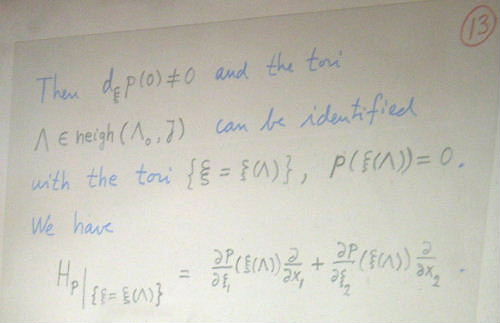 13
Then d_ξ p(0) ≠ 0 and the tori
Λ ∈ neigh(Λ₀, J) can be identified
with the tori {ξ = ξ(Λ)}, p(ξ(Λ)) = 0.
We have
H_p|_{ξ = ξ(Λ)} = ∂p/∂ξ₁ (ξ(Λ)) ∂/∂x₁ + ∂p/∂ξ₂ (ξ(Λ)) ∂/∂x₂ .